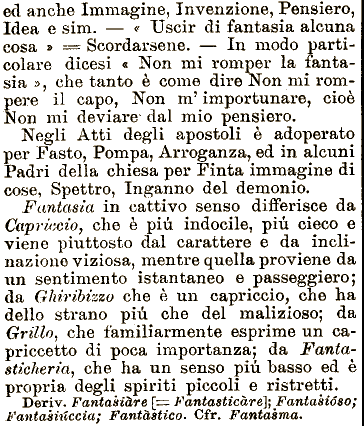 ed anche Immagine, Invenzione, Pensiero,
Idea e sim. — « Uscir di fantasia alcuna
cosa » = Scordarsene. — In modo parti-
colare dicesi « Non mi romper la fanta-
sia », che tanto è come dire Non mi rom-
pere il capo, Non m' importunare, cioè
Non mi deviare dal mio pensiero.
Negli Atti degli apostoli è adoperato
per Fasto, Pompa, Arroganza, ed in alcuni
Padri della chiesa per Finta immagine di
cose, Spettro, Inganno del demonio.
Fantasia in cattivo senso differisce da
Capriccio, che è piú indocile, piú cieco e
viene piuttosto dal carattere e da incli-
nazione viziosa, mentre quella proviene da
un sentimento istantaneo e passeggiero;
da Ghiribizzo che è un capriccio, che ha
dello strano piú che del malizioso; da
Grillo, che familiarmente esprime un ca-
priccetto di poca importanza; da Fanta-
sticheria, che ha un senso piú basso ed è
propria degli spiriti piccoli e ristretti.
Deriv. Fantasiàre [= Fantasticàre]; Fantasióso;
Fantasiúccia; Fantàstico. Cfr. Fantasma.